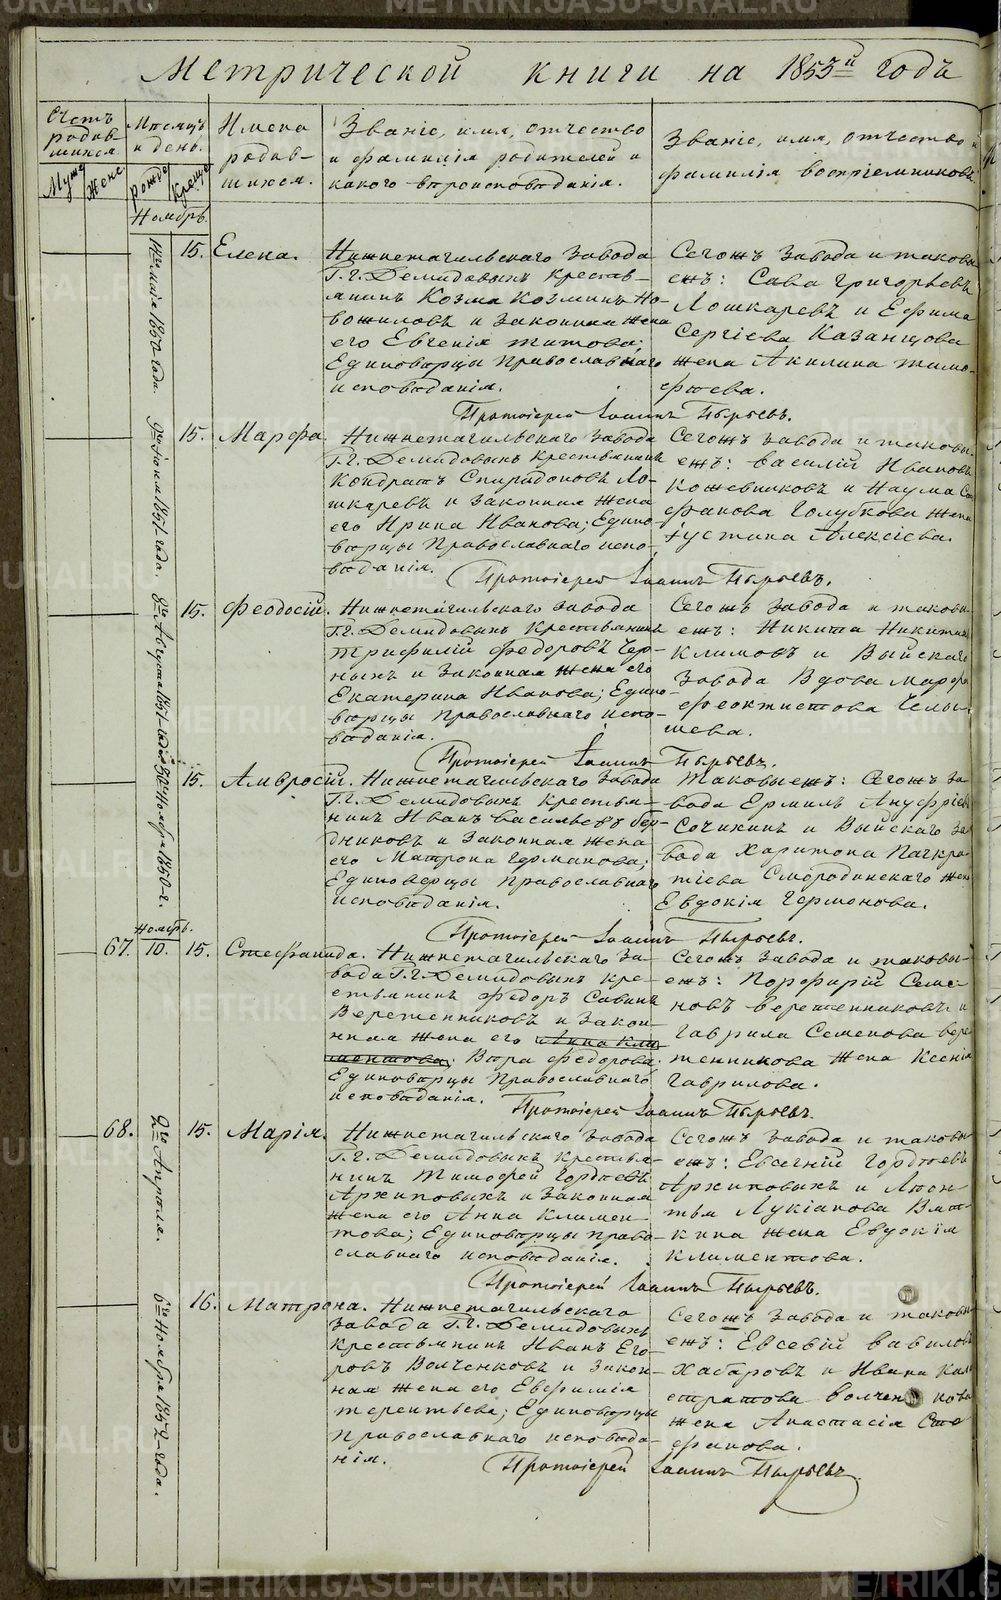 METRIKI.GASO-URAL.RU
Метрической книги на 1853й годъ
Счетъ родив-шихся.
Муж Женс
Мѣсяцъ и день.
рожде креще
Имена родив-шихся.
Званіе, имя, отчество и фамилія родителей и какого вѣроисповѣданія.
Званіе, имя, отчество и фамилія воспріемниковъ
Ноябрь.
1850 года.
15. Елена.
Нижнетагильскаго завода
Г.г. Демидовыхъ крестья-
нинъ Козма Козминъ Но-
вожиловъ и законная жена
его Евгенія Титова;
Единовѣрцы Православнаго
исповѣданія.
Сегожъ завода и таковы
ежъ: Сава Григорьевъ
Лошкаревъ и Ефима
Сергіева Казанцова
жена Акилина Тимо-
феева.
Протоіерей Іоаннъ Пырьевъ.
1851 года.
15. Марфа.
Нижнетагильскаго завода
Г.г. Демидовыхъ крестьянинъ
Кондратъ Спиридоновъ Ло-
шкаревъ и законная жена
его Ирина Иванова; Едино-
вѣрцы Православнаго испо-
вѣданія.
Сегожъ завода и таковы
ежъ: Василій Ивановъ
Кожевниковъ и Наума Сте
фанова Голубкова жена
Іустина Алексіева.
Протоіерей Іоаннъ Пырьевъ.
8го Августа 1851 года
15. Феодосій.
Нижнетагильскаго завода
Г.г. Демидовыхъ крестьянинъ
Трифилій Федоровъ Чер-
ныхъ и законная жена его
Екатерина Иванова; Едино-
вѣрцы Православнаго испо-
вѣданія.
Сегожъ завода и таковы
ежъ: Никита Никитинъ
Климовъ и Выйскаго
завода Вдова Марфа
Феоктистова Челы-
шева.
Протоіерей Іоаннъ Пырьевъ.
Ноября 1850 г.
15. Амвросій.
Нижнетагильскаго завода
Г.г. Демидовыхъ крестья-
нинъ Иванъ Васильевъ Бер-
дниковъ и законная жена
его Матрона Германова;
Единоверцы Православнаго
исповѣданія.
Таковыежъ: Сегожъ за
вода Ермилъ Ануфріевъ
Сочихинъ и Выйскаго за
вода Харитона Панкра-
тіева Смородинскаго жена
Евдокія Гермонова.
Протоіерей Іоаннъ Пырьевъ.
Ноябрь.
67. 10. 15. Стефанида.
Нижнетагильскаго За-
вода Г.г. Демидовыхъ кре-
стьянинъ Федоръ Савинъ
Веретенниковъ и закон-
ная жена его Анна Кли
ментова: Вѣра Федорова;
Единовѣрцы Православнаго
исповѣданія.
Сегожъ завода и таковы-
ежъ: Порфирій Семе-
новъ Веретенниковъ и
Гаврила Семенова Вере
тенникова жена Ксенія
Гаврилова.
Протоіерей Іоаннъ Пырьевъ.
68. 2го Апреля. 15. Марія.
Нижнетагильскаго завода
Г.г. Демидовыхъ крестья-
нинъ Тимофей Гордѣевъ
Архиповыхъ и законная
жена его Анна Климен-
това; Единовѣрцы Право-
славнаго исповѣданія.
Сегожъ завода и таковы
ежъ: Евгеній Гордѣевъ
Архиповыхъ и
Лукіанова Вят-
кина жена Евдокія
Климентова.
Протоіерей Іоаннъ Пырьевъ.
6го Ноября 1852 года.
16. Матрона.
Нижнетагильскаго
завода Г.г. Демидовыхъ
крестьянинъ Иванъ Его-
ровъ Волченковъ и закон-
ная жена его Евфимія
Терентьева; Единовѣрцы
Православнаго исповѣда-
нія.
Сегожъ завода и таковы
ежъ: Евсевій Вавиловъ
Хабаровъ и Ивана Кали
стратова Волченкова
жена Анастасія Сте
фанова.
Протоіерей Іоаннъ Пырьевъ.
METRIKI.GASO-URAL.RU